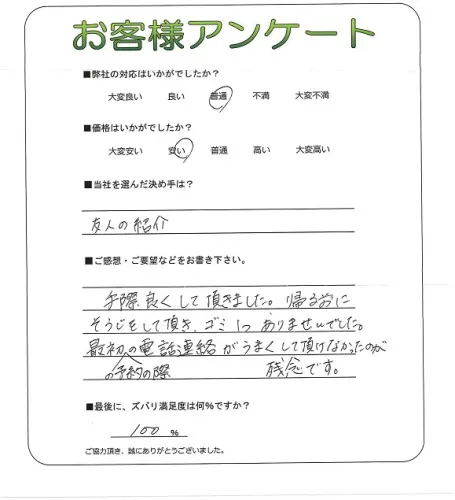 お客様アンケート
■弊社の対応はいかがでしたか?
大変良い 良い 普通 不満 大変不満
■価格はいかがでしたか?
大変安い 安い 普通 高い 大変高い
■当社を選んだ決め手は?
友人の紹介
■ご感想・ご要望などをお書き下さい。
手際良くして頂きました。帰る前に
そうじをして頂き、ゴミ1つありませんでした。
最初の電話連絡がうまくして頂けなかったのが
の予約の際 残念です。
■最後に、ズバリ満足度は何%ですか?
100 %
ご協力頂き、誠にありがとうございました。